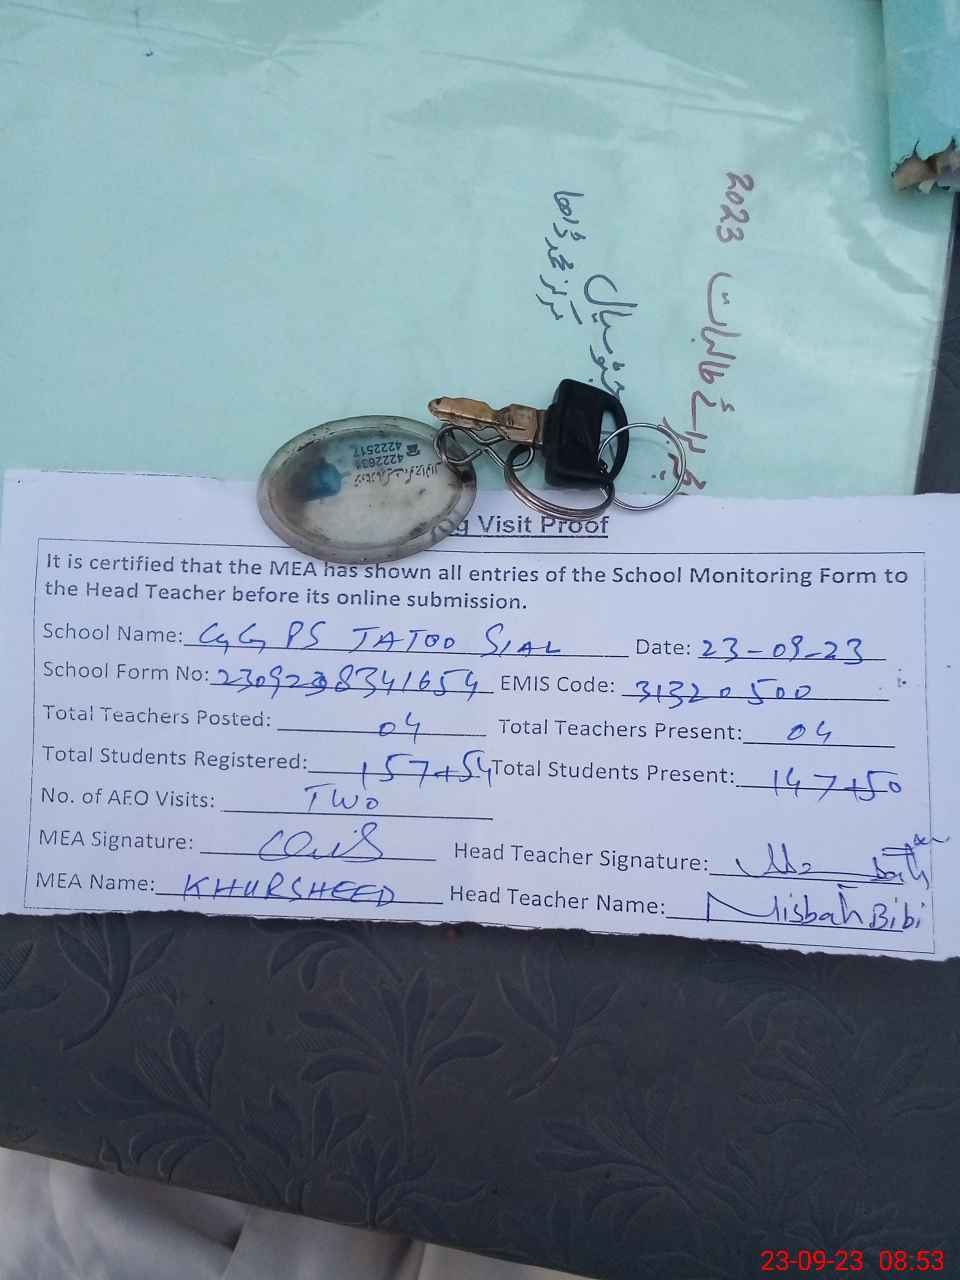 2023
طالبات
برائے
سیال
مرکز محمد
4222631
4222517
og Visit Proof
It is certified that the MEA has shown all entries of the School Monitoring Form to
the Head Teacher before its online submission.
School Name: GGPS TATOO SIAL Date: 23-09-23
School Form No: 2309238341654 EMIS Code: 31320500
Total Teachers Posted: 04 Total Teachers Present: 04
Total Students Registered: 157+54 Total Students Present: 147+50
No. of AEO Visits: TWO
MEA Signature: Head Teacher Signature:
MEA Name: KHURSHEED Head Teacher Name: Misbah Bibi
23-09-23 08:53